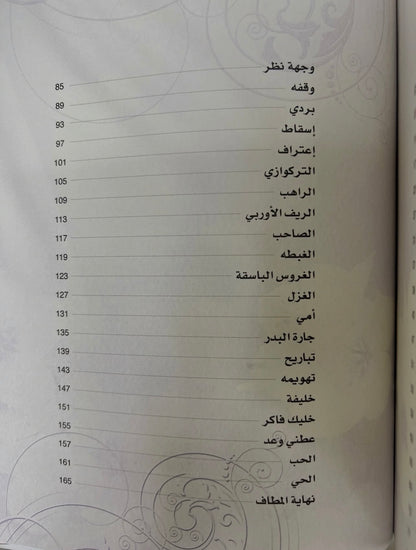 وجهة نظر 85
وقفه 89
بردي 93
إسقاط 97
إعتراف 101
التركوازي 105
الراهب 109
الريف الأوربي 113
الصاحب 117
الغبطه 119
الغروس الباسقة 123
الغزل 127
أمي 131
جارة البدر 135
تباريح 139
تهويمه 143
خليفة 147
خليك فاكر 151
عطني وعد 155
الحب 157
الحي 161
نهاية المطاف 165